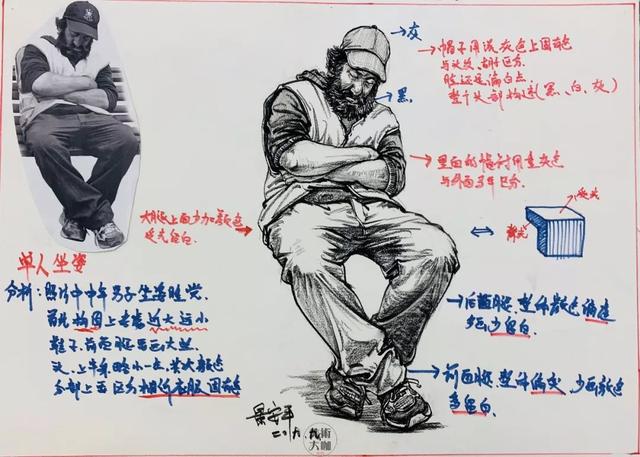 灰
帽子用浅灰色上固有色
与头发、胡子区分.
脸还是偏白点.
整个头部构成(黑、白、灰)
黑.
里面的
与外面马甲区分.
大腿上面少加颜色
受光留白.
受光
背光
单人坐姿
分析: 照片中中年男子坐姿睡觉.
首先构图上考虑近大远小
鞋子、前面腿要画大些.
头、上半身略小一点、其次颜色
分部上要区分相邻衣服固有色
后面腿、整体颜色偏重
多画少留白.
前面腿、整体偏灰、少画颜色
多留白.
景安平
二〇一九.
美術
大咖